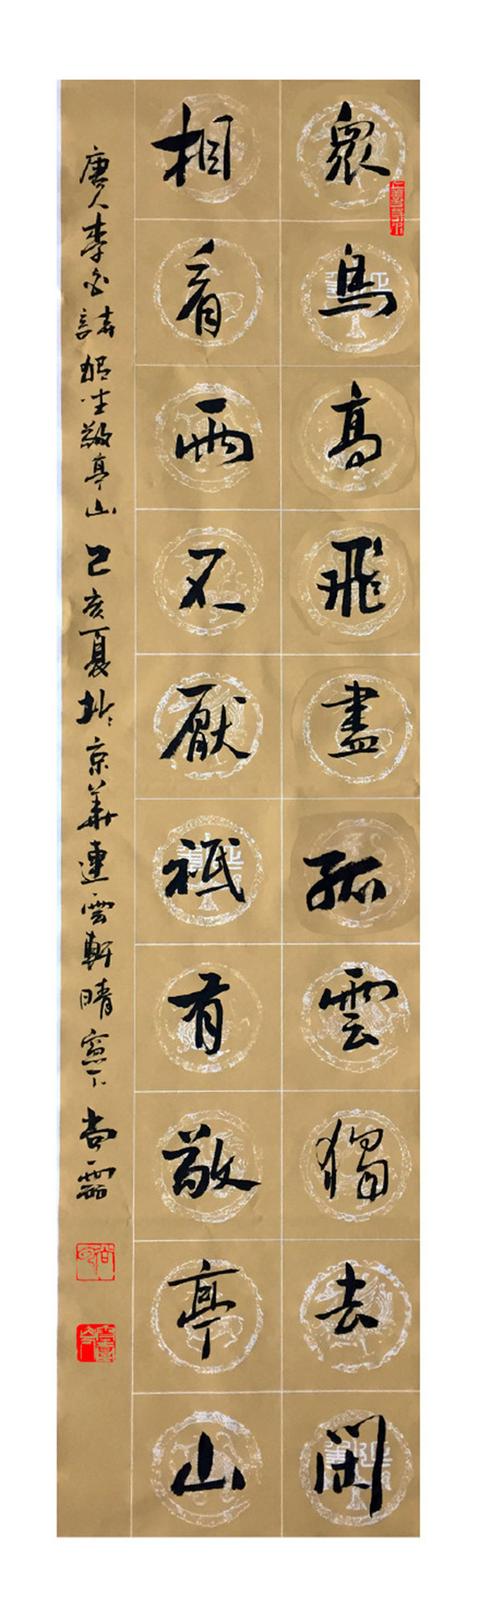 衆鳥高飛盡孤雲獨去閑
相看兩不厭祇有敬亭山
唐人李白詩獨坐敬亭山 己亥夏於京華連雲軒晴窗下 尚